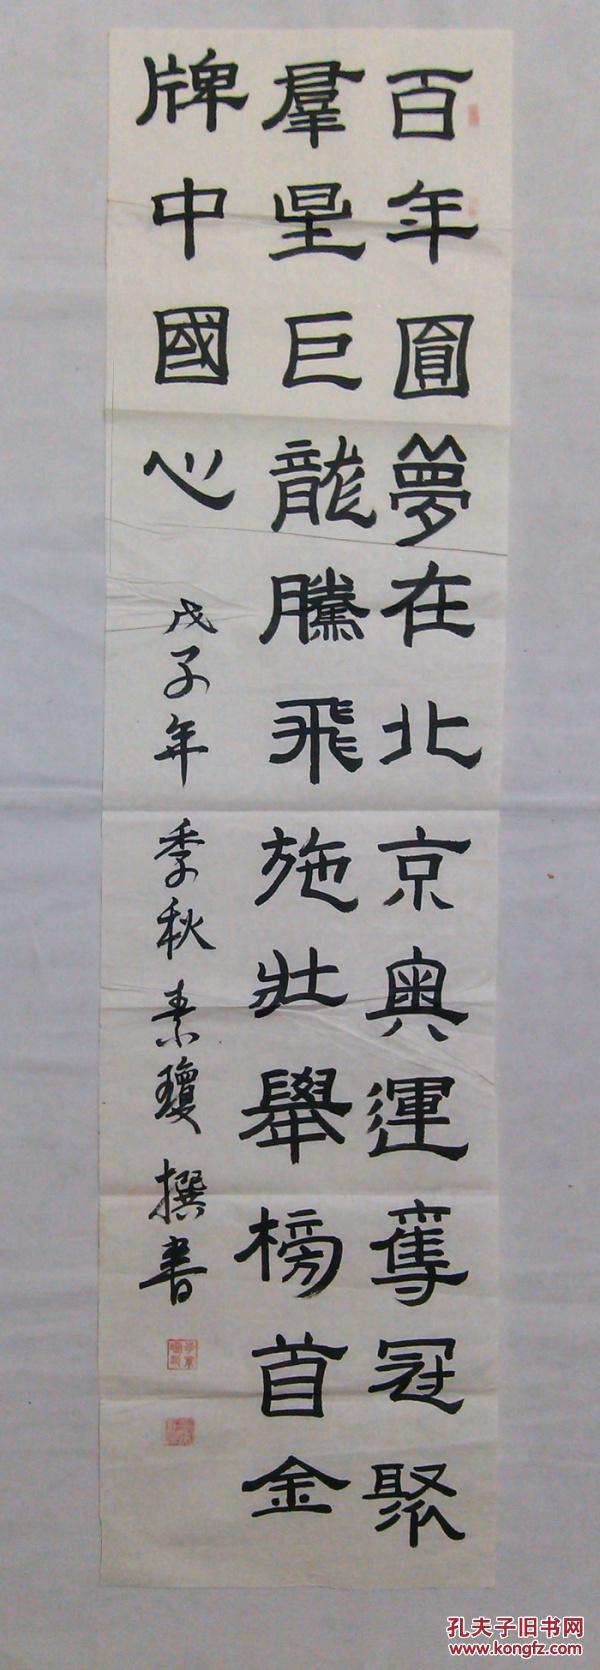 百年圓夢在北京奧運奪冠聚
羣星巨龍騰飛施壯舉榜首金
牌中國心
戊子年 季秋 素瓊 撰書
孔夫子旧书网
www.kongfz.com